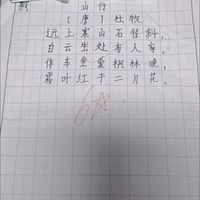 山行
[唐] 杜牧
远上寒山石径斜，
白云生处有人家。
停车坐爱枫林晚，
霜叶红于二月花。